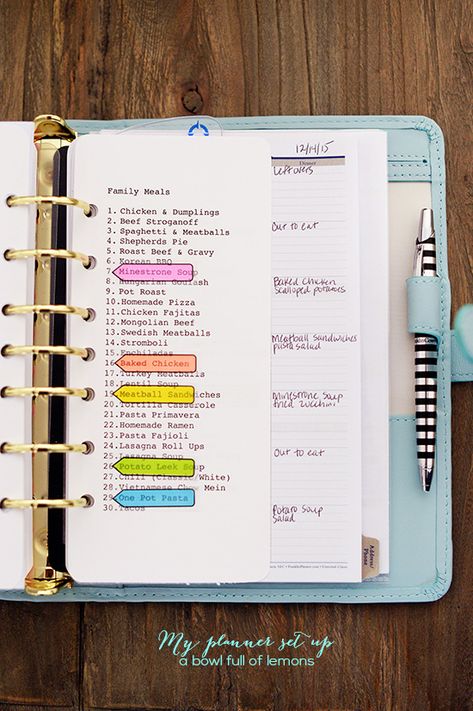 Family Meals
1. Chicken & Dumplings
2. Beef Stroganoff
3. Spaghetti & Meatballs
4. Shepherds Pie
5. Roast Beef & Gravy
6. Korean BBQ
7. Minestrone Soup
8. Hungarian Goulash
9. Pot Roast
10. Homemade Pizza
11. Chicken Fajitas
12. Mongolian Beef
13. Swedish Meatballs
14. Stromboli
15. Enchiladas
16. Baked Chicken
17. Turkey Meatballs
18. Lentil Soup
19. Meatball Sandwiches
20. Tortilla Casserole
21. Pasta Primavera
22. Homemade Ramen
23. Pasta Fajioli
24. Lasagna Roll Ups
25. Lasagna Soup
26. Potato Leek Soup
27. Chili (Classic/White)
28. Vietnamese Chow Mein
29. One Pot Pasta
30. Tacos
12/14/15
Dinner
leftovers
Out to eat
Baked Chicken
Scalloped potatoes
Meatball Sandwiches
pasta salad
Minestrone Soup
fried zucchini
Out to eat
Potato Soup
Salad
Address/
Phone
My planner set up
a bowl full of lemons